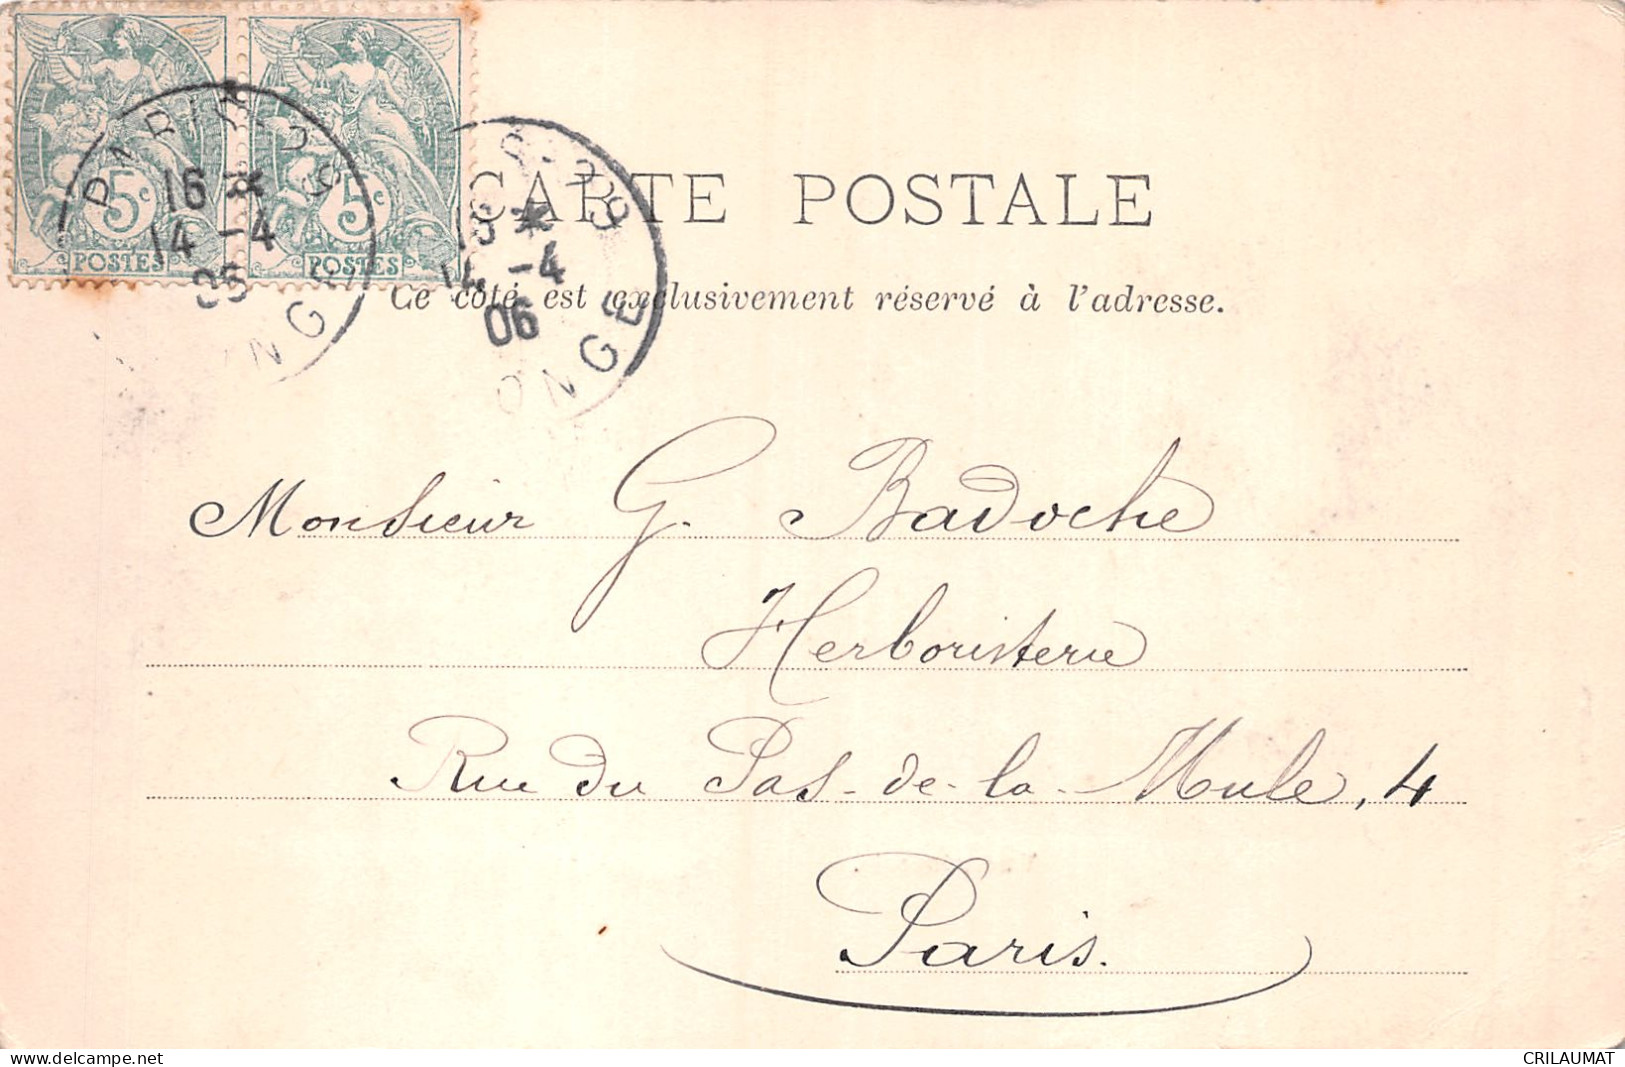 5c 5c
POSTES POSTES
PARIS-39
16 *
14 -4
06
ONGE
16 *
14 -4
06
ONGE
CARTE POSTALE
Ce côté est exclusivement réservé à l'adresse.
Monsieur G. Badoche
Herboristerie
Rue du Pas-de-la-Mule, 4
Paris.
www.delcampe.net
CRILAUMAT